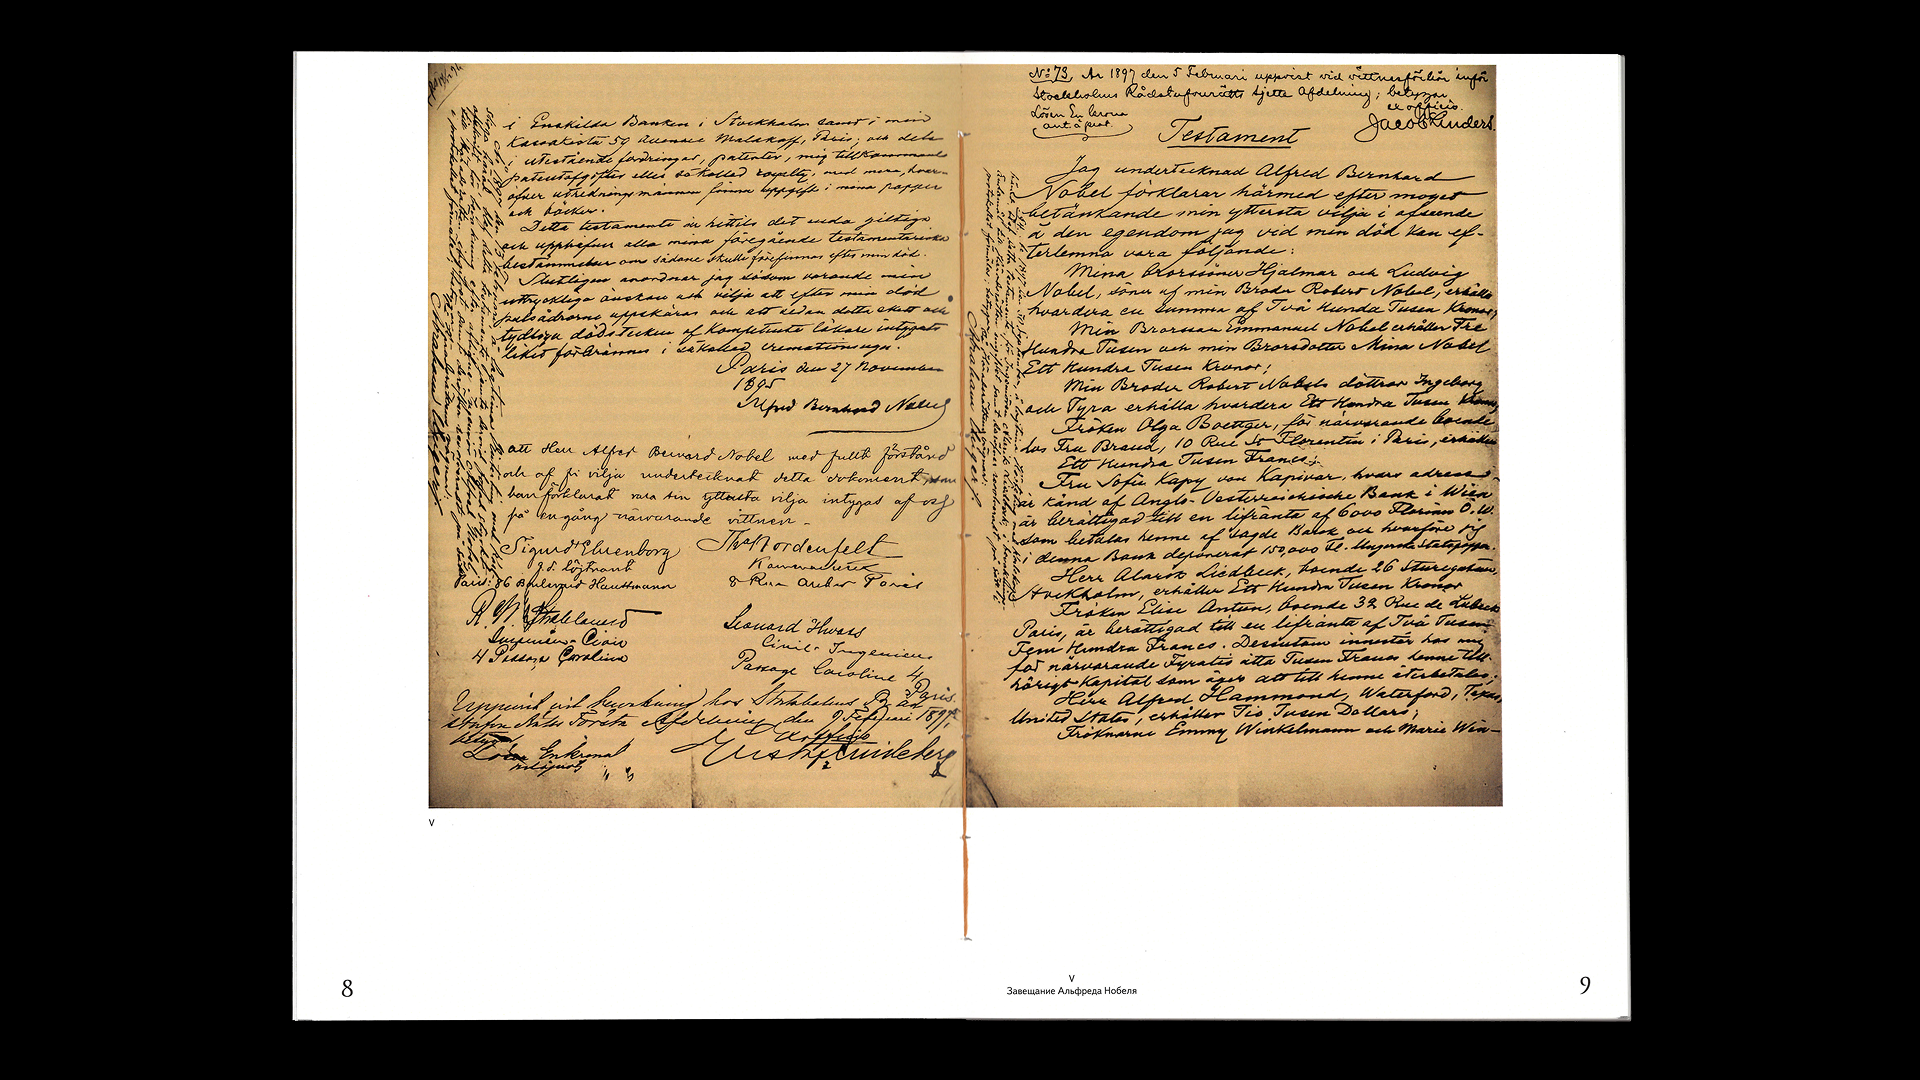 i Enskilda Banken i Stockholm samt i min
Kassakista 59 Avenue Malakoff, Paris; och dels
i utestående fordringar, patenter, mig tillkommande
patentafgifter eller såkallad royalty, med mera, hvar-
öfver utredningsmännen finna uppgift i mina papper
och böcker.
Detta testamente är hittills det enda giltiga
och upphäfver alla mina föregående testamentariska
bestämmelser om sådane skulle förefinnas efter min död.
Slutligen anordnar jag såsom varande min
uttryckliga önskan och vilja att efter min död
pulsådrorna uppskäras och att sedan detta skett och
tydliga dödstecken af kompetenta läkare intygats
liket förbrännes i såkallad cremationsugn.
Paris den 27 November
1895
Alfred Bernhard Nobel
att Herr Alfred Bernhard Nobel med fullt förstånd
och af fri vilja undertecknat detta dokument, som
han förklarat vara sin yttersta vilja intygas af oss
på en gång närvarande vittnen.
Sigurd Ehrenborg
f.d. Löjtnant
Paris: 86 Boulevard Haussmann
Ths Nordenfelt
8 Rue Auber Paris
R. W. Strehlenert
Ingeniör-Civil
4 Passage Caroline
Leonard Hwass
Civil-Ingeniör
Passage Caroline 4
Paris.
V
8
No 73, År 1897 den 5 Februari uppvist vid vittnesförhör inför
Stockholms Rådstufvurätts sjette Afdelning; betygar
ex officio.
Testament
Jag undertecknad Alfred Bernhard
Nobel förklarar härmed efter moget
betänkande min yttersta vilja i afseende
å den egendom jag vid min död kan ef-
terlemna vara följande:
Mina Brorsöner Hjalmar och Ludvig
Nobel, söner af min Broder Robert Nobel, erhålla
hvardera en summa af Två Hundra Tusen Kronor;
Min Brorson Emmanuel Nobel erhåller Tre
Hundra Tusen och min Brorsdotter Mina Nobel
Ett Hundra Tusen Kronor;
Min Broder Robert Nobels döttrar Ingeborg
och Tyra erhålla hvardera Ett Hundra Tusen Kronor;
Fröken Olga Boettger, för närvarande boende
hos Fru Brand, 10 Rue St Florentin i Paris, erhåller
Ett Hundra Tusen Francs;
Fru Sofie Kapy von Kapivar, hvars adress
är känd af Anglo-Oesterreichische Bank i Wien
är berättigad till en lifränta af 6000 Florins Ö.W.
som betalas henne af sagde Bank och hvarföre jag
i denna Bank deponerat 150,000 Fl. Ungerska Statspapper.
Herr Alarik Liedbeck, boende 26 Sturegatan,
Stockholm, erhåller Ett Hundra Tusen Kronor
Fröken Elise Antun, boende 32 Rue de Lubeck
Paris, är berättigad till en lifränta af Två Tusen
Fem Hundra Francs. Dessutom innestår hos mig
för närvarande Fyratio åtta Tusen Francs henne till-
hörigt Kapital som äger att till henne återbetalas;
Herr Alfred Hammond, Waterford, Texas,
United States, erhåller Tio Tusen Dollars;
Fröknarne Emmy Winkelmann och Marie Win-
V
Завещание Альфреда Нобеля
9